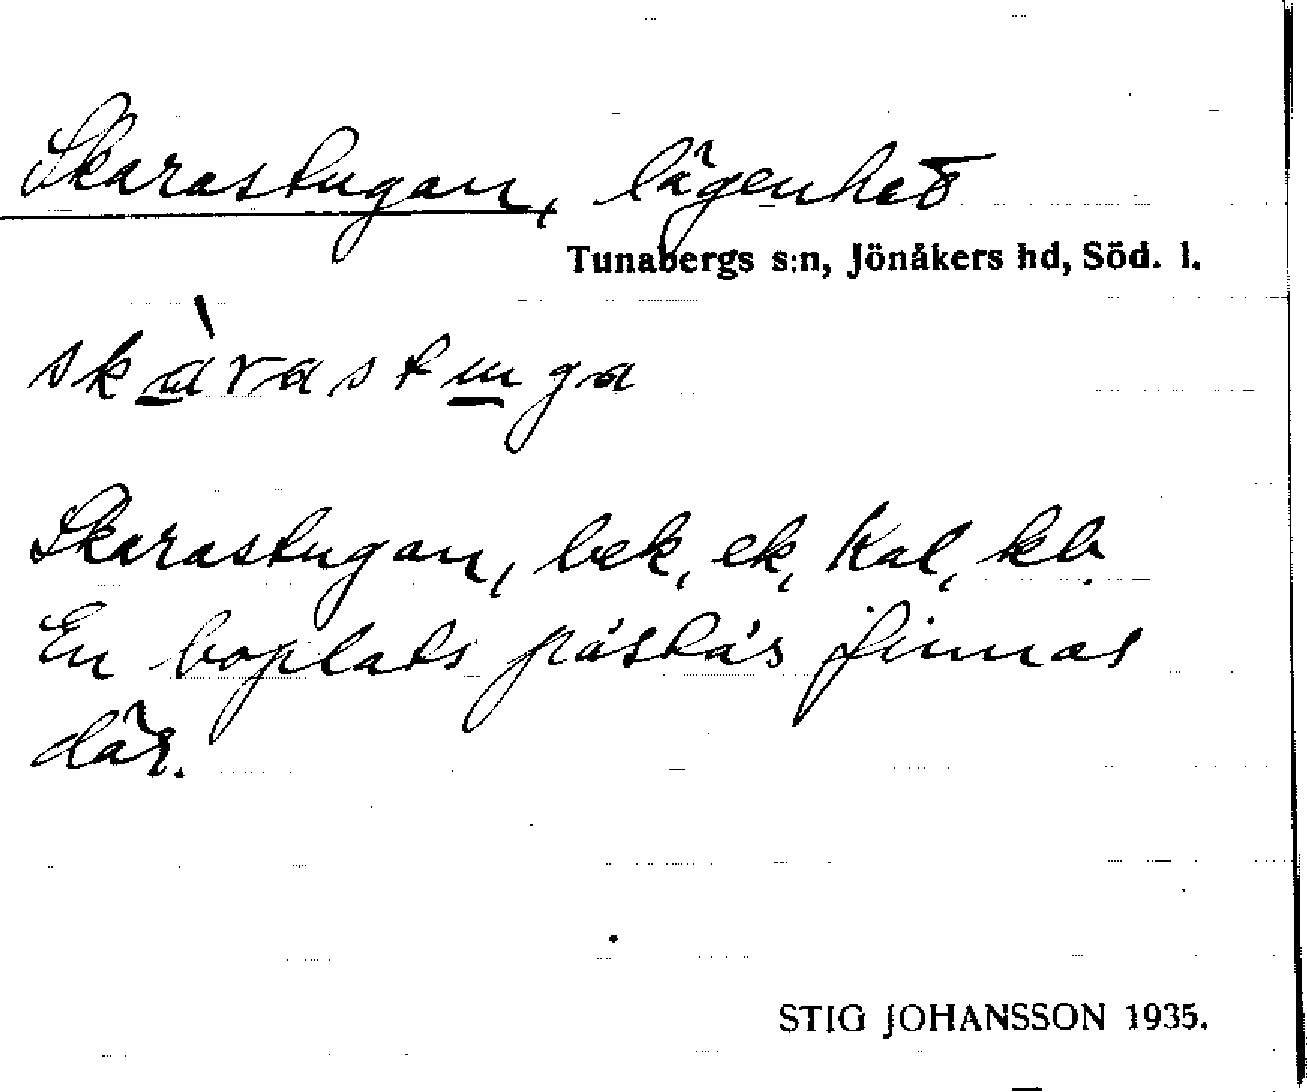 Skarastugan, lägenhet
Tunabergs s:n, Jönåkers hd, Söd. l.
skàrastuga
Skarastugan, bek, ek, Kal, kb.
En boplats påstås finnas
där.
STIG JOHANSSON 1935.